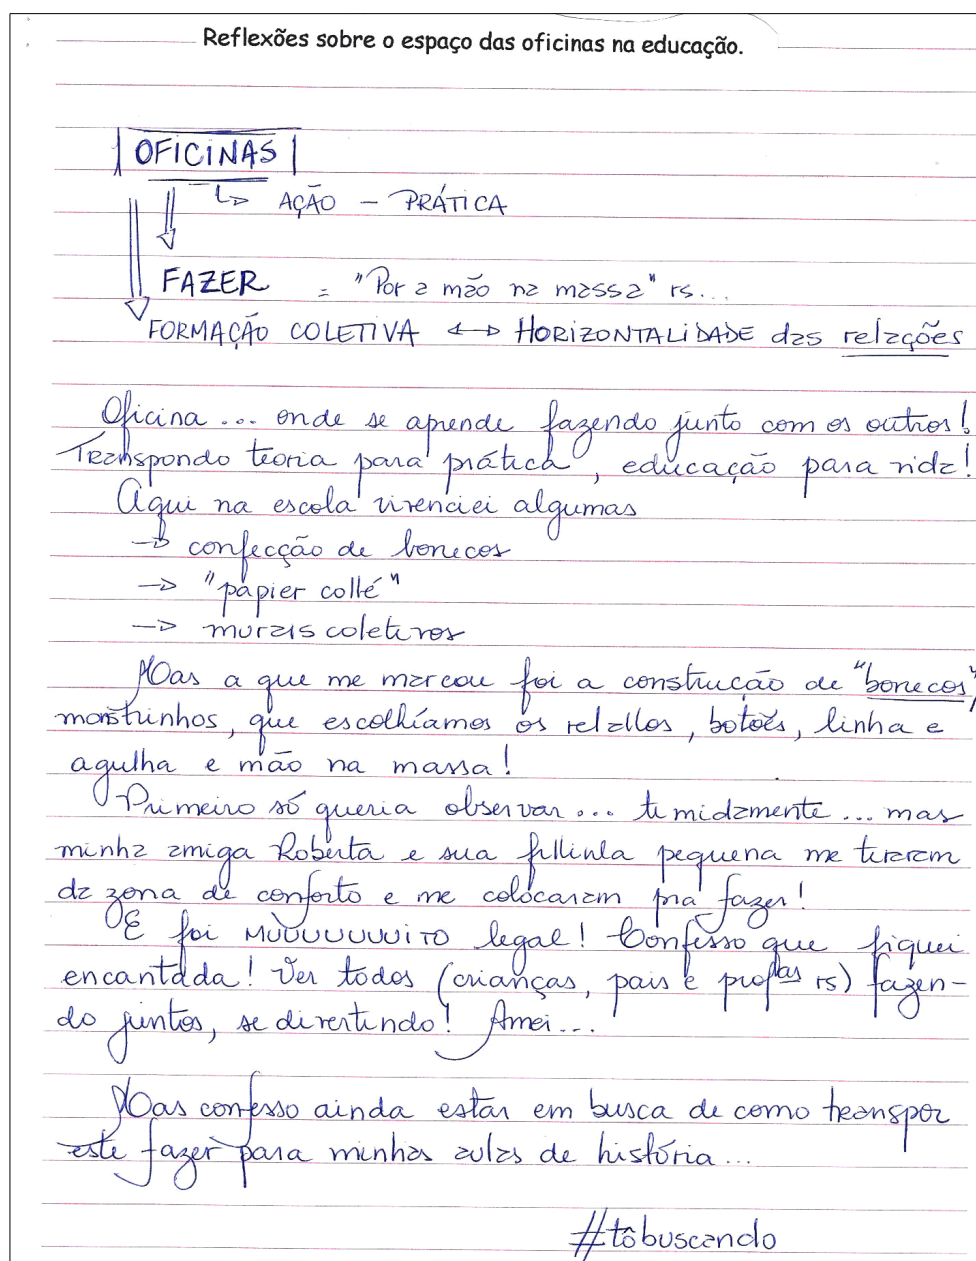 Reflexões sobre o espaço das oficinas na educação.
OFICINAS
↳ AÇÃO - PRÁTICA
FAZER = "Por a mão na massa" rs...
FORMAÇÃO COLETIVA ↔ HORIZONTALIDADE das relações
Oficina... onde se aprende fazendo junto com os outros!
Transpondo teoria para prática, educação para vida!
Aqui na escola vivenciei algumas
→ confecção de bonecos
→ "papier collé"
→ murais coletivos
Mas a que me marcou foi a construção de "bonecos",
monstrinhos, que escolhíamos os retalhos, botões, linha e
agulha e mão na massa!
Primeiro só queria observar... timidamente... mas
minha amiga Roberta e sua filhinha pequena me tiraram
da zona de conforto e me colocaram pra fazer!
E foi MUUUUUUUITO legal! Confesso que fiquei
encantada! Ver todos (crianças, pais e profas rs) fazen-
do juntos, se divertindo! Amei...
Mas confesso ainda estar em busca de como transpor
este fazer para minhas aulas de história...
#tôbuscando